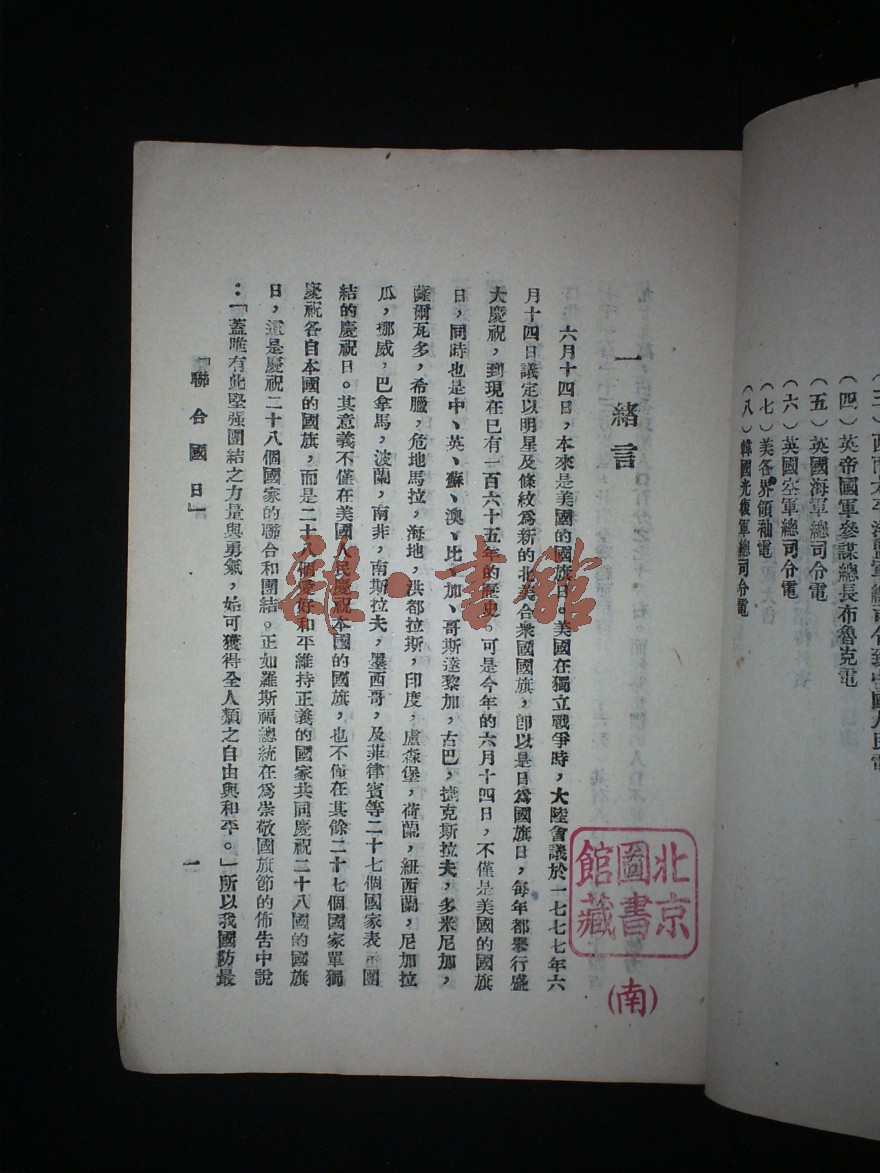 （三）西南太平洋盟軍總司令致中國人民電
（四）英帝國軍參謀總長布魯克電
（五）英國海軍總司令電
（六）英國空軍總司令電
（七）美各界領袖電
（八）韓國光復軍總司令電
一　緒言
六月十四日，本來是美國的國旗日。美國在獨立戰爭時，大陸會議於一七七七年六
月十四日議定以明星及條紋爲新的北美合衆國國旗，卽以是日爲國旗日，每年都舉行盛
大慶祝，到現在已有一百六十五年的歷史。可是今年的六月十四日，不僅是美國的國旗
日，同時也是中、英、蘇、澳、比、加、哥斯達黎加，古巴，捷克斯拉夫，多米尼加，
薩爾瓦多，希臘，危地馬拉，海地，洪都拉斯，印度，盧森堡，荷蘭，紐西蘭，尼加拉
瓜，挪威，巴拿馬，波蘭，南非，南斯拉夫，墨西哥，及菲律賓等二十七個國家表示團
結的慶祝日。其意義不僅在美國人民慶祝本國的國旗，也不僅在其餘二十七個國家單獨
慶祝各自本國的國旗，而是二十八個愛好和平維持正義的國家共同慶祝二十八國的國旗
日，這是慶祝二十八個國家的聯合和團結。正如羅斯福總統在爲崇敬國旗節的佈告中說
：「蓋唯有此堅强團結之力量與勇氣，始可獲得全人類之自由與和平。」所以我國防最
「聯合國日」
一
北京
圖書
館藏
（南）
雅·書館